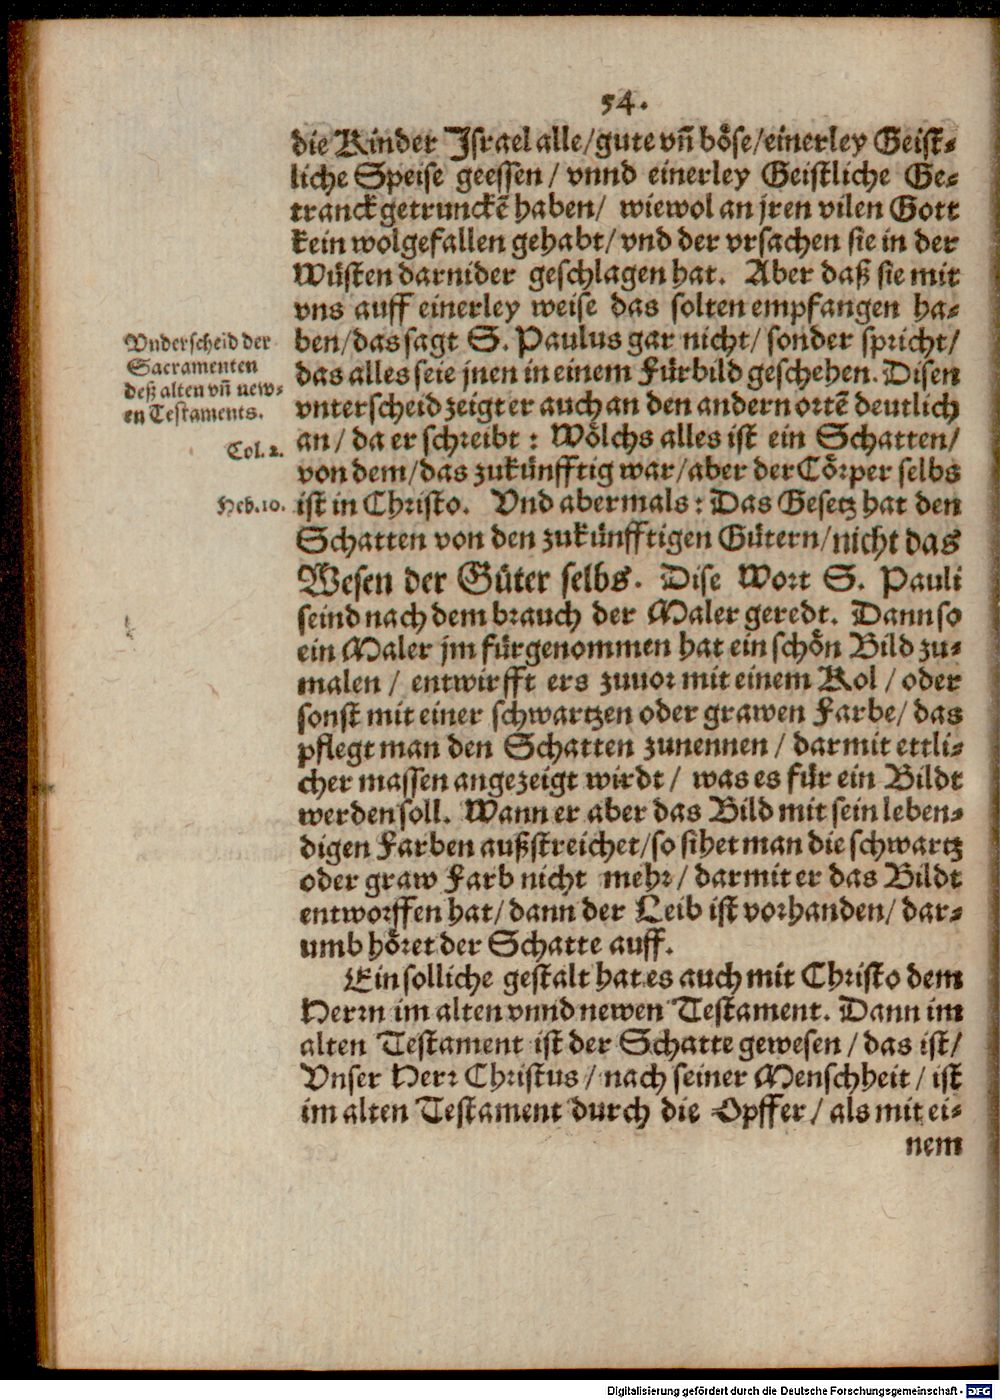 54.
die Kinder Israel alle/gute vñ böse/einerley Geist-
liche Speise geessen/ vnnd einerley Geistliche Ge-
tranck getrunckē haben/ wiewol an jren vilen Gott
kein wolgefallen gehabt/ vnd der vrsachen sie in der
Wüsten darnider geschlagen hat. Aber daß sie mit
vns auff einerley weise das solten empfangen ha-
Vnderscheid der
Sacramenten
deß alten vñ new-
en Testaments.
ben/das sagt S. Paulus gar nicht/ sonder spricht/
das alles seie jnen in einem Fürbild geschehen. Disen
vnterscheid zeigt er auch an den andern ortē deutlich
Col. 2.
an/ da er schreibt: Wölchs alles ist ein Schatten/
von dem/das zukünfftig war/aber der Cörper selbs
Heb. 10.
ist in Christo. Vnd abermals: Das Gesetz hat den
Schatten von den zukünfftigen Gütern/nicht das
Wesen der Güter selbs. Dise Wort S. Pauli
seind nach dem brauch der Maler geredt. Dann so
ein Maler jm fürgenommen hat ein schön Bild zu-
malen/ entwirfft ers zuuor mit einem Kol/ oder
sonst mit einer schwartzen oder grawen Farbe/ das
pflegt man den Schatten zunennen/ darmit ettli-
cher massen angezeigt wirdt/ was es für ein Bildt
werden soll. Wann er aber das Bild mit sein leben-
digen Farben außstreichet/so sihet man die schwartz
oder graw Farb nicht mehr/ darmit er das Bildt
entworffen hat/ dann der Leib ist vorhanden/ dar-
umb höret der Schatte auff.
Ein solliche gestalt hat es auch mit Christo dem
Herrn im alten vnnd newen Testament. Dann im
alten Testament ist der Schatte gewesen/ das ist/
Vnser Herr Christus/ nach seiner Menschheit/ ist
im alten Testament durch die Opffer/ als mit ei-
nem
Digitalisierung gefördert durch die Deutsche Forschungsgemeinschaft - DFG